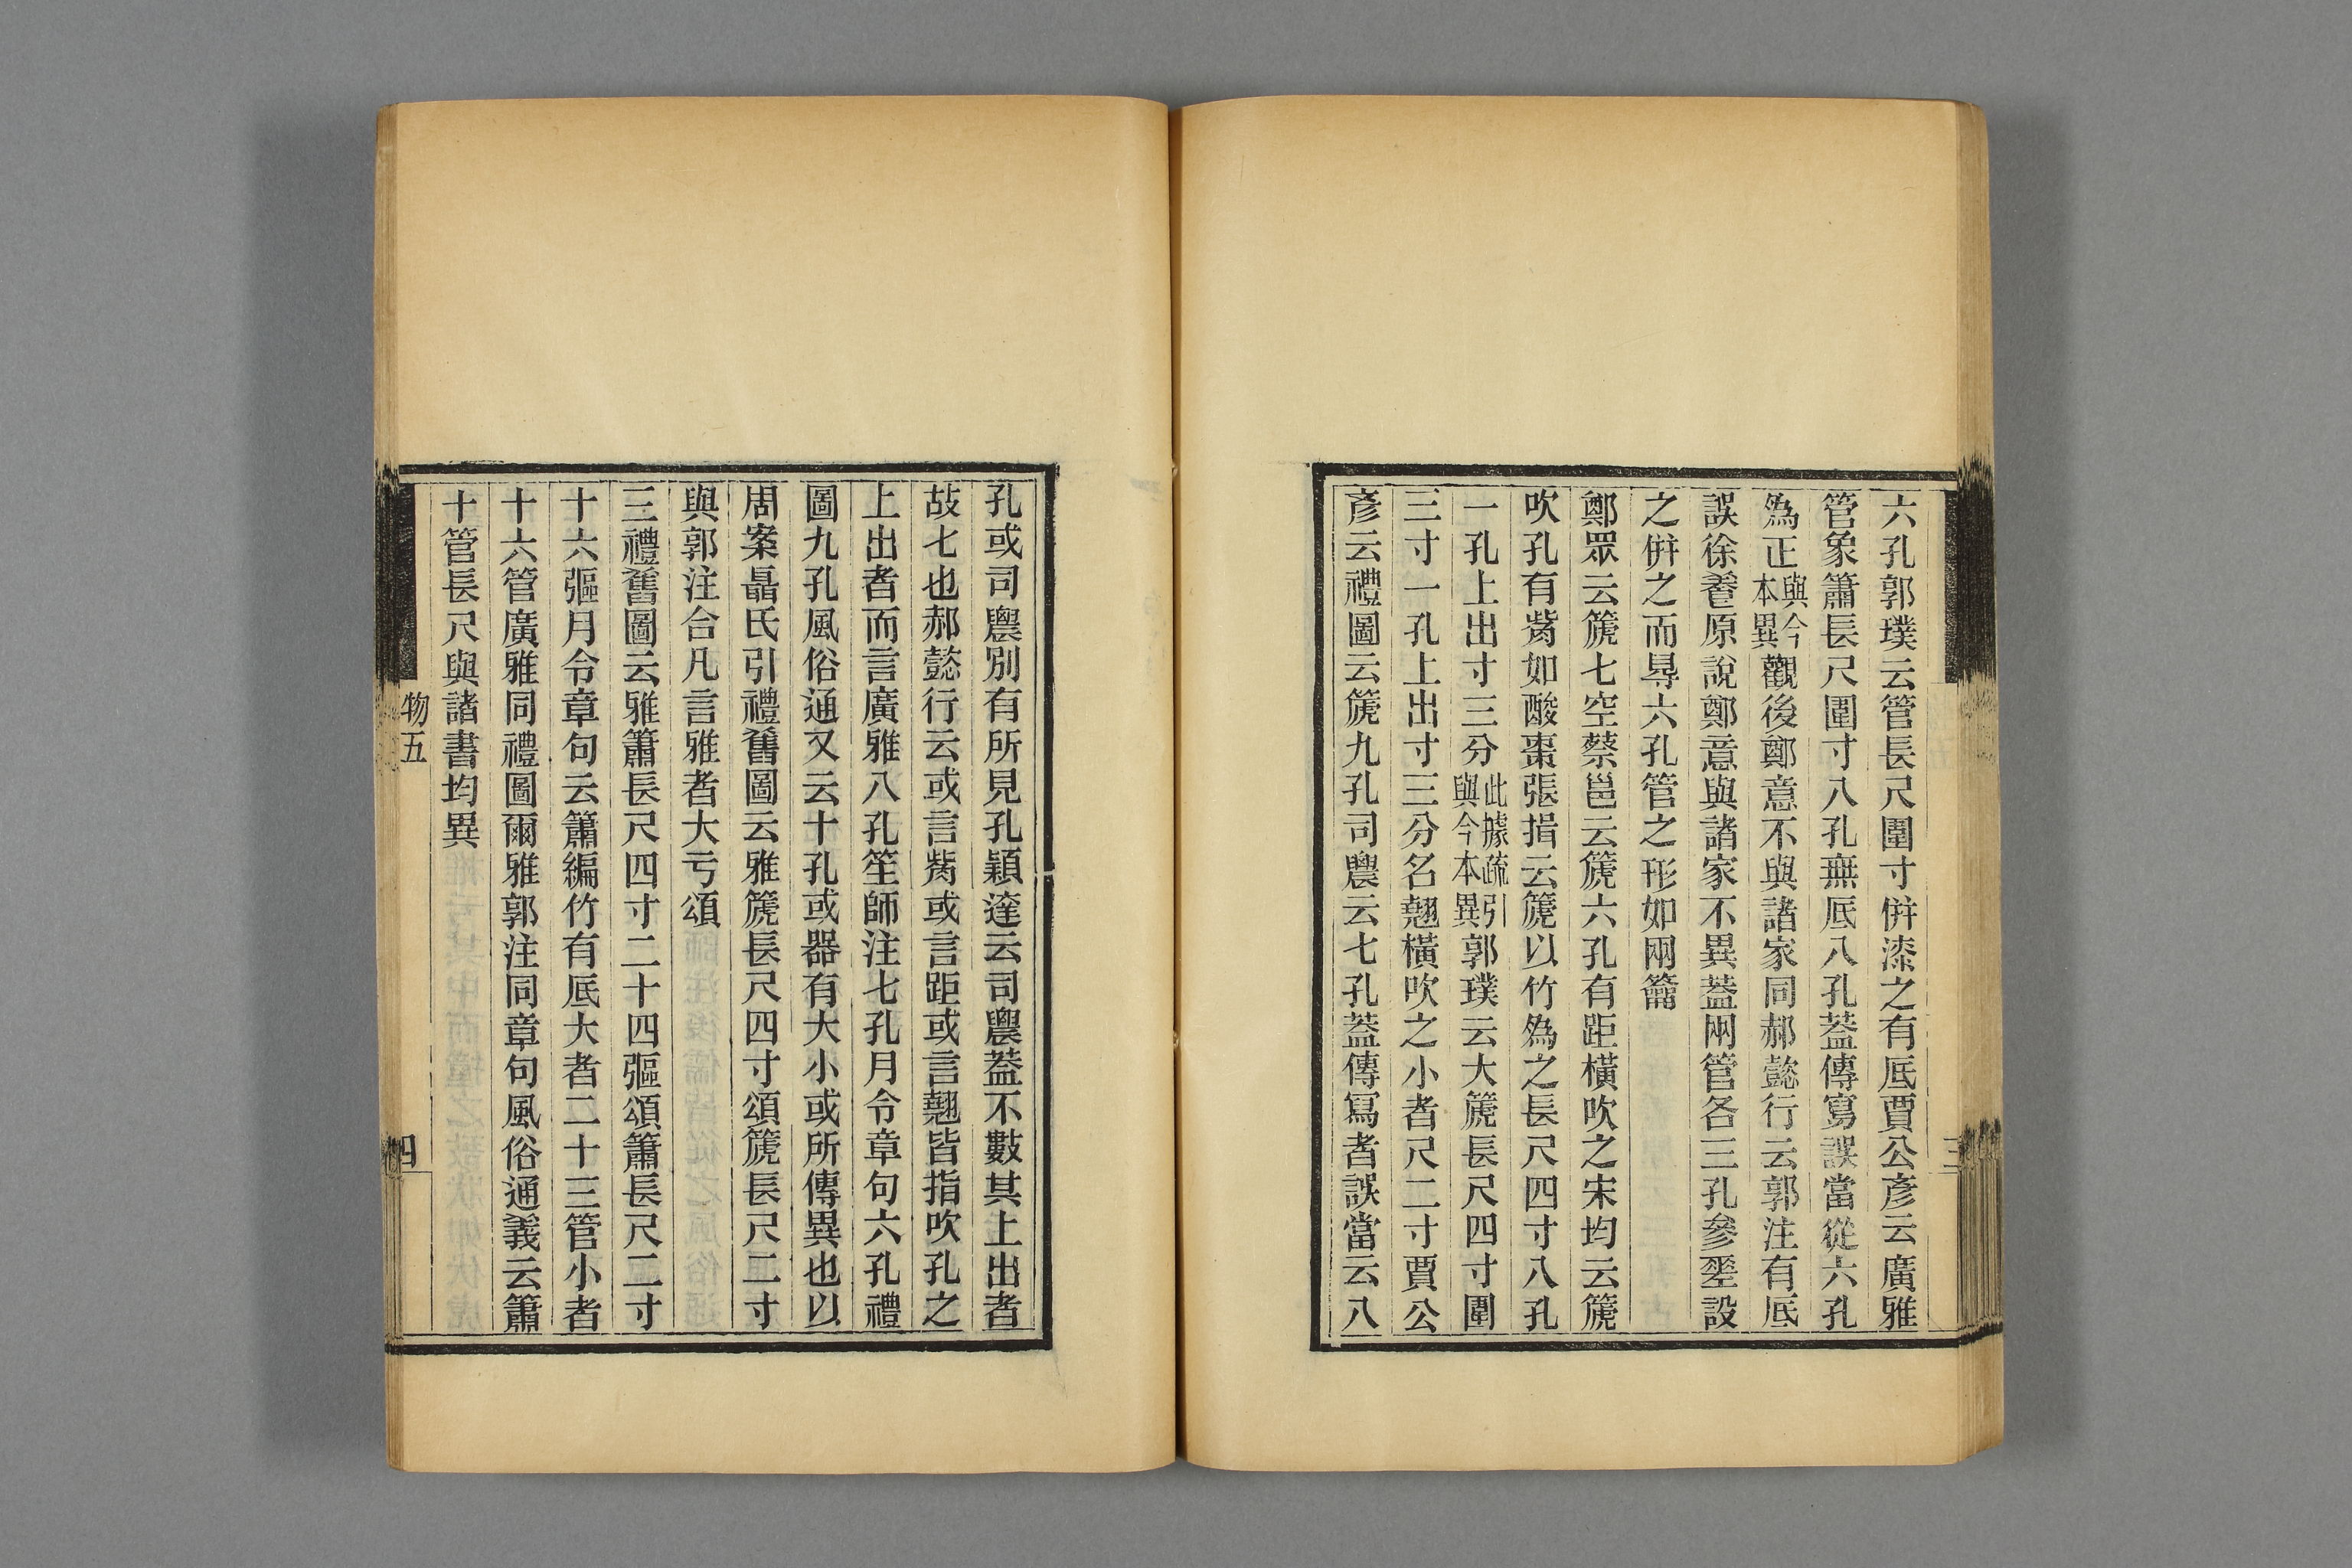 六孔郭璞云管長尺圍寸倂漆之有底賈公彥云廣雅
管象簫長尺圍寸八孔無底八孔蓋傳寫誤當從六孔
爲正與今本異觀後鄭意不與諸家同郝懿行云郭注有底
誤徐養原說鄭意與諸家不異蓋兩管各三孔參䇓設
之倂之而㝵六孔管之形如兩籥
鄭眾云篪七空蔡邕云篪六孔有距橫吹之宋均云篪
吹孔有觜如酸棗張揖云篪以竹爲之長尺四寸八孔
一孔上出寸三分此據疏引與今本異郭璞云大篪長尺四寸圍
三寸一孔上出寸三分名翹橫吹之小者尺二寸賈公
彥云禮圖云篪九孔司農云七孔蓋傳寫者誤當云八
孔或司農別有所見孔穎達云司農蓋不數其上出者
故七也郝懿行云或言觜或言距或言翹皆指吹孔之
上出者而言廣雅八孔笙師注七孔月令章句六孔禮
圖九孔風俗通又云十孔或器有大小或所傳異也以
周案聶氏引禮舊圖云雅篪長尺四寸頌篪長尺二寸
與郭注合凡言雅者大亏頌
三禮舊圖云雅簫長尺四寸二十四彄頌簫長尺二寸
十六彄月令章句云簫編竹有底大者二十三管小者
十六管廣雅同禮圖爾雅郭注同章句風俗通義云簫
十管長尺與諸書均異
物五
四
三